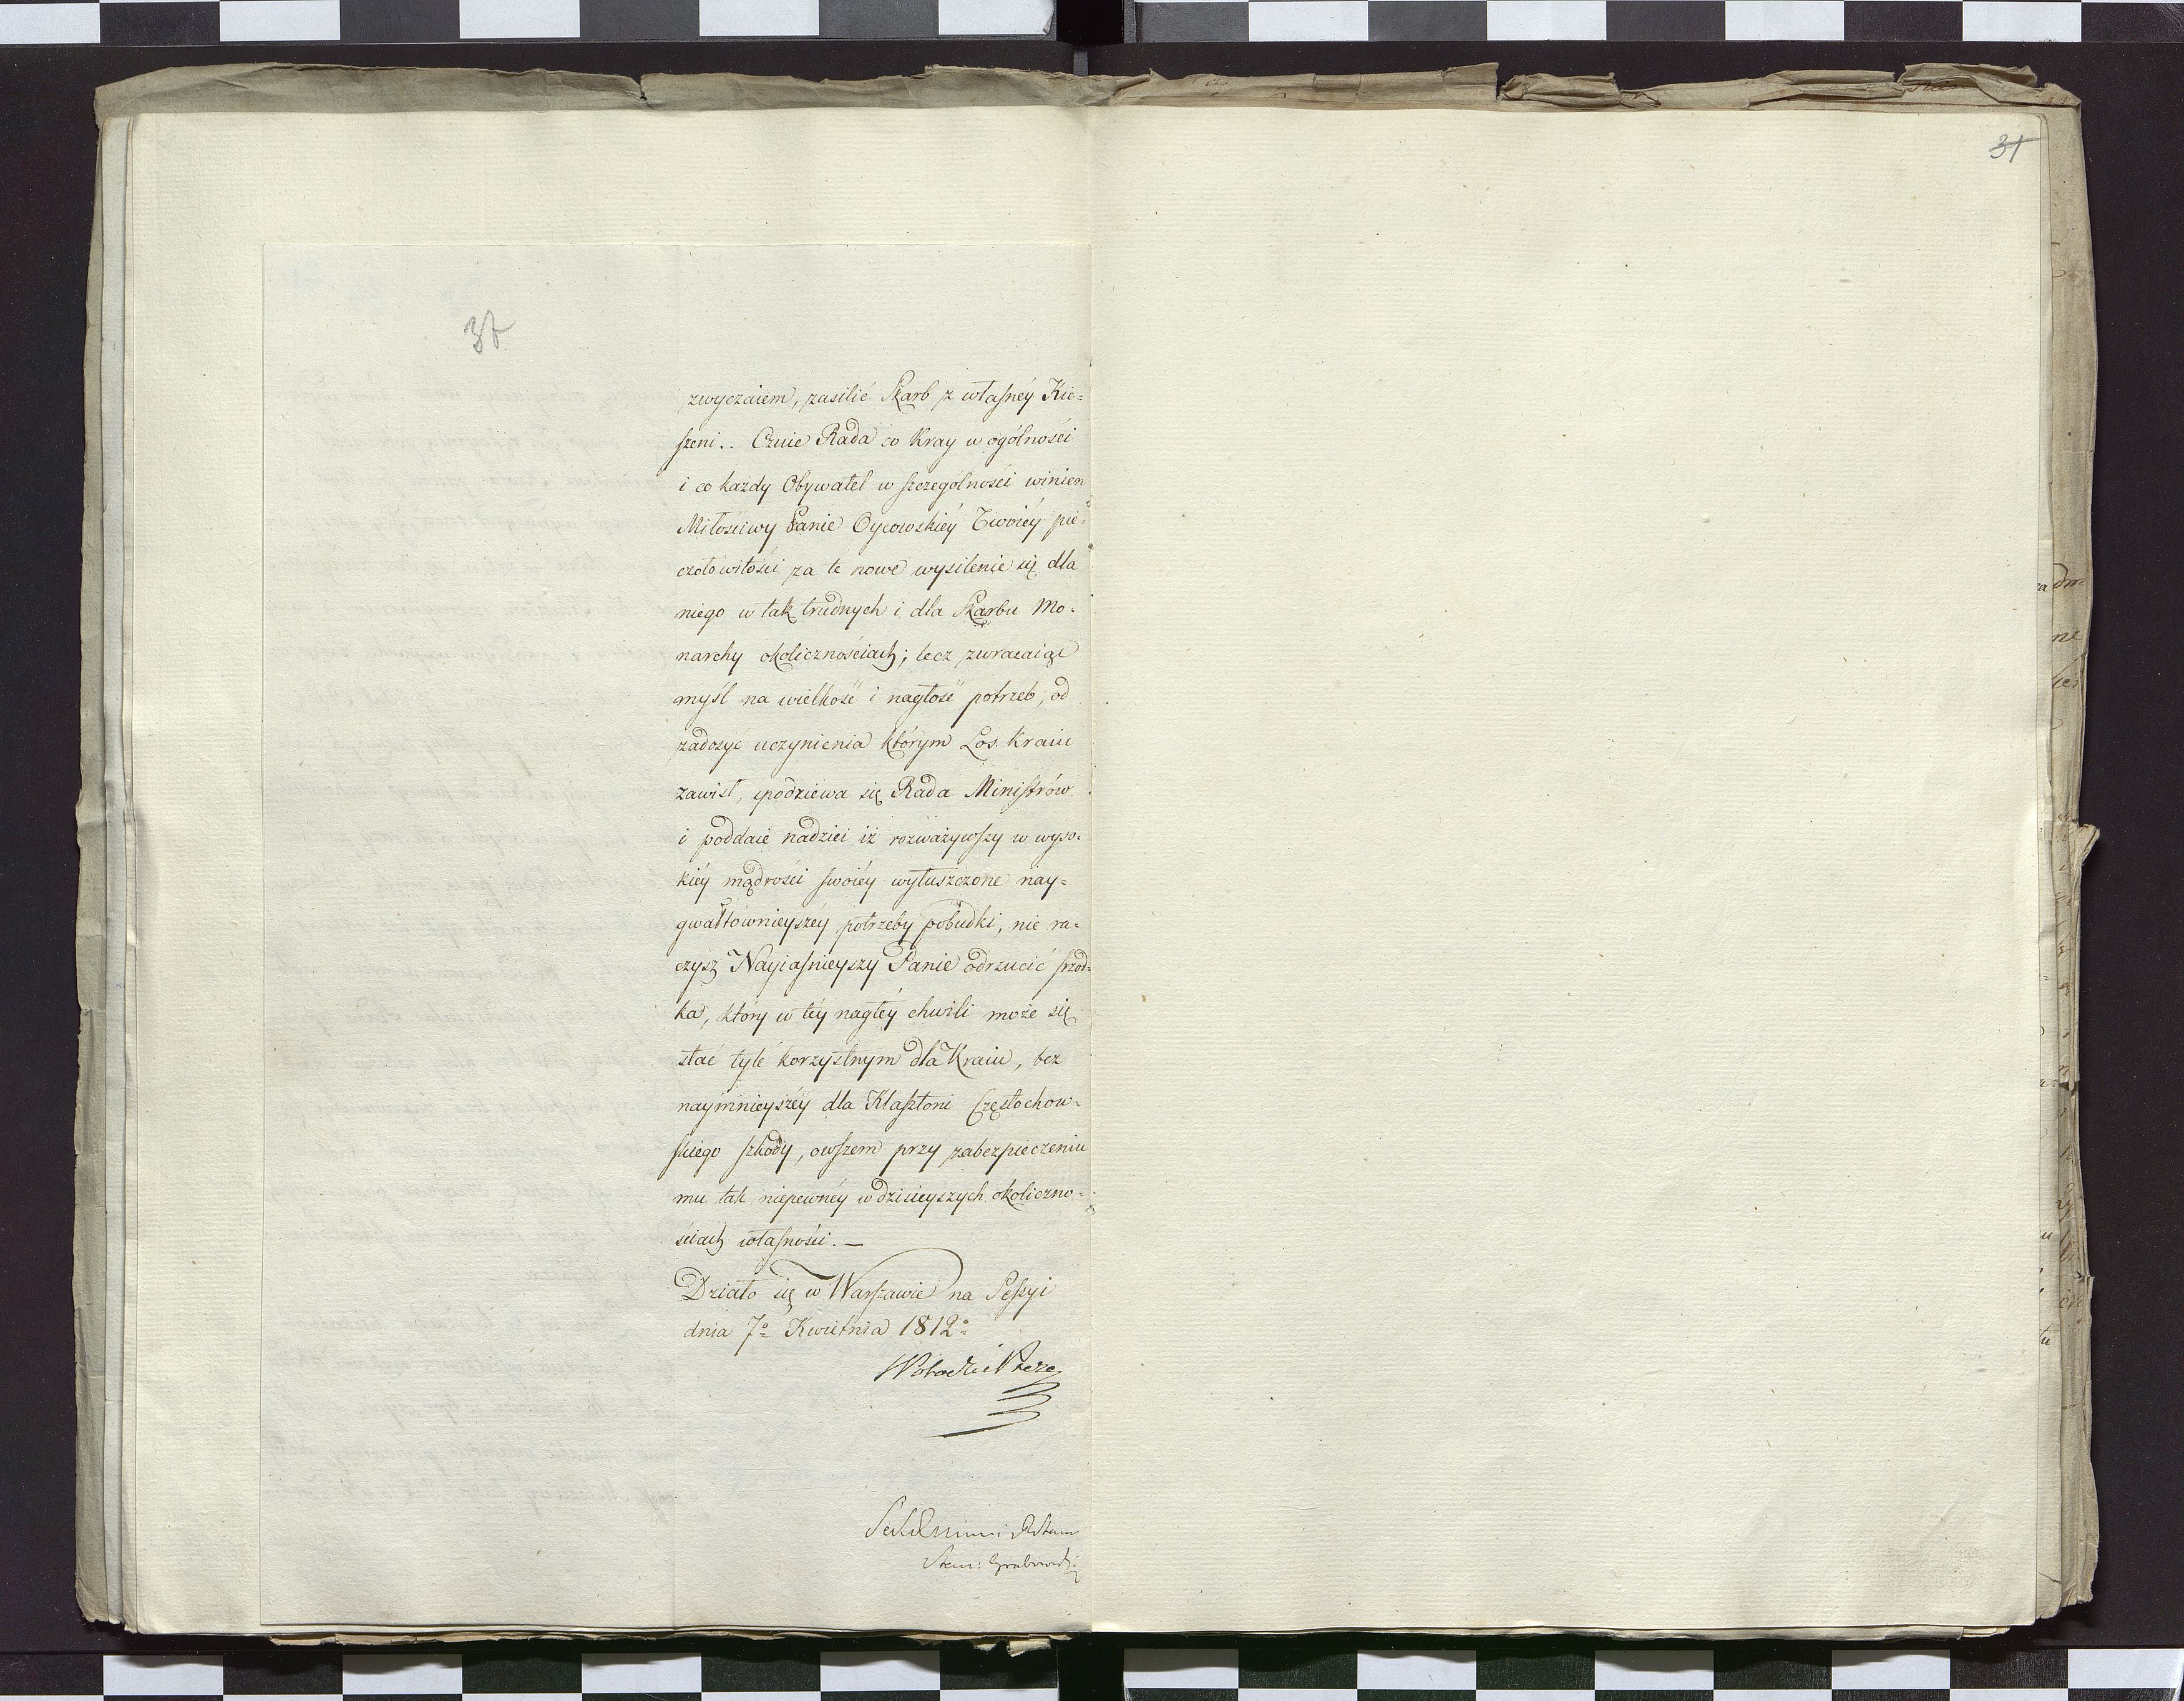 31
37
zwyczaiem, zasilić Skarb z własnéy Kie=
szeni.. Czuie Rada co Kray w ogólności
i co każdy Obywatel w szczególności winien
Miłościwy Panie Oycowskiéy Twoiéy pie=
czołowitości za te nowe wysilenie się dla
niego w tak trudnych i dla Skarbu Mo=
narchy okolicznościach; lecz zwracaiąc
myśl na wielkość i nagłość potrzeb, od
zadosyć uczynienia którym Los Kraiu
zawisł, spodziewa się Rada Ministrów
i poddaie nadziei iż rozważywszy w wyso=
kiéy mądrości swoiéy wyłuszczone nay=
gwałtównieyszéy potrzeby pobudki, nie ra=
czysz Nayiaśnieyszy Panie odrzucić szrod=
ka, który w téy nagłéy chwili może się
stać tyle korzystnym dla Kraiu, bez
naymnieyszéy dla Klasztoru Częstochow=
skiego szkody, owszem przy zabezpieczeniu
mu tak niepewnéy w dzisieyszych okoliczno=
ściach własności. —
Działo się w Warszawie na Sessyi
dnia 7o Kwietnia 1812o
Stan: Grabowski